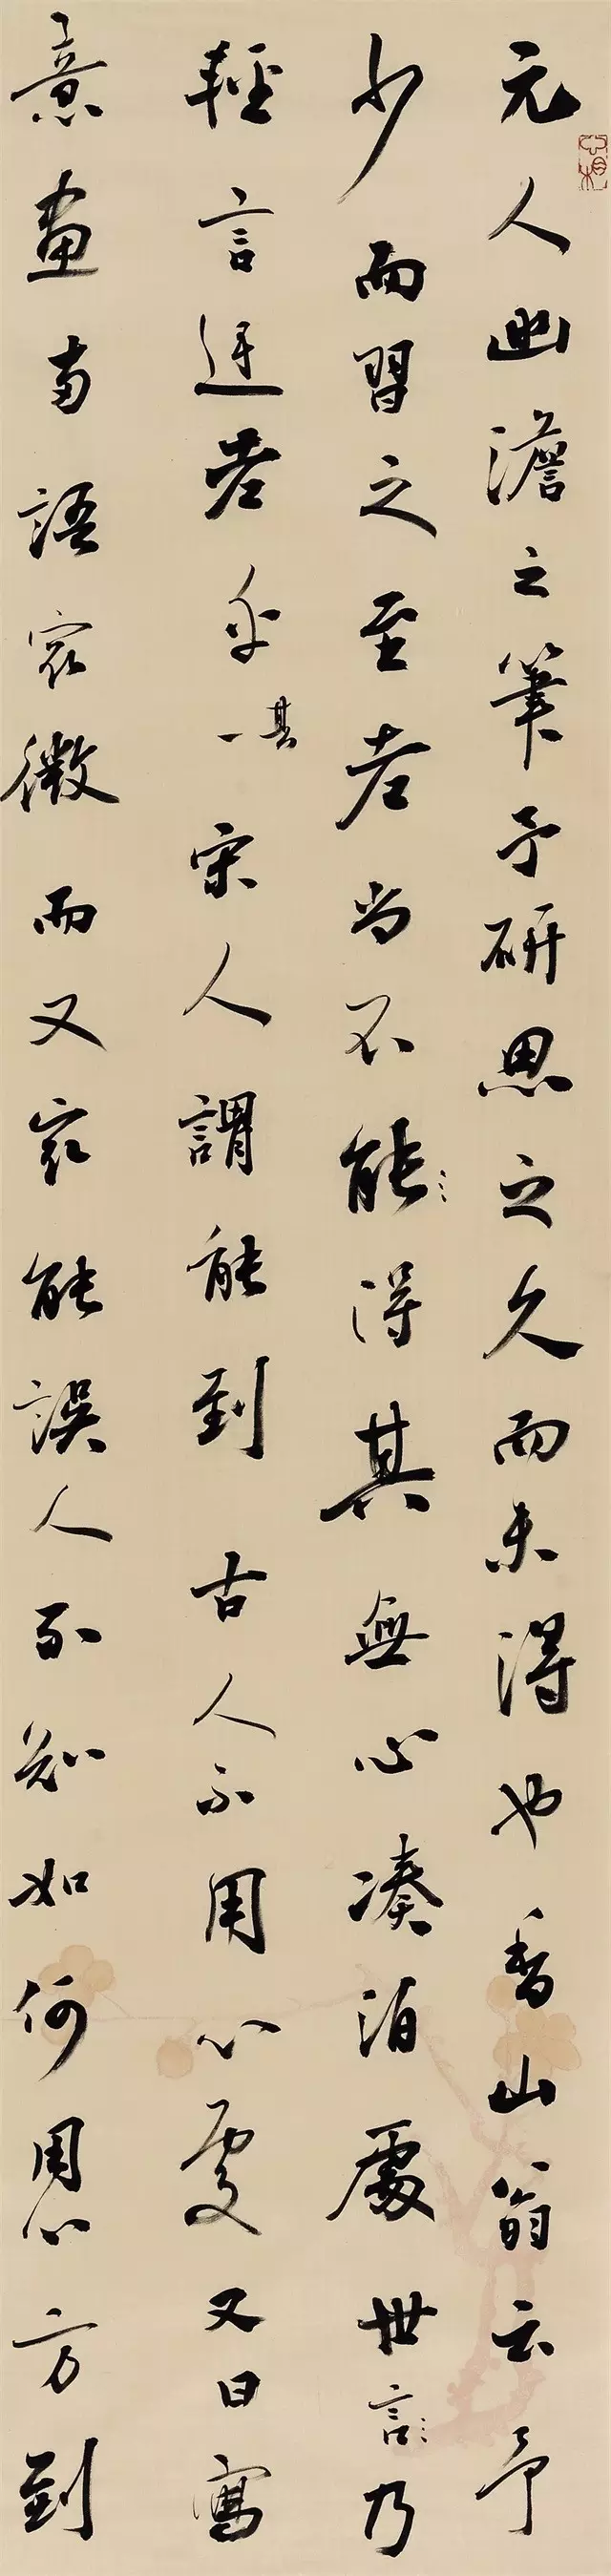 元人幽澹之筆予研思之久而未得也香山翁云予
少而習之至老尚不能得其無心湊泊處世言乃
輕言迂老乎其一宋人謂能到古人不用心處又曰寫
意畫兩語最微而又最能誤人不知如何用心方到